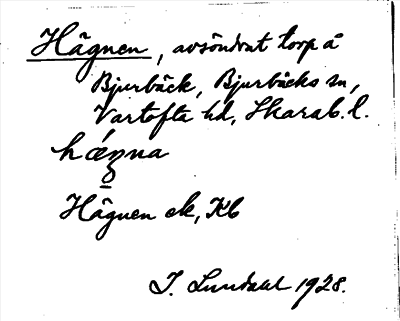 Hägnen, avsöndrat torp å
Bjurbäck, Bjurbäcks sn,
Vartofta hd, Skarab. l.
hæ´gna
Hägnen ek, Kb
I. Lundahl 1928.